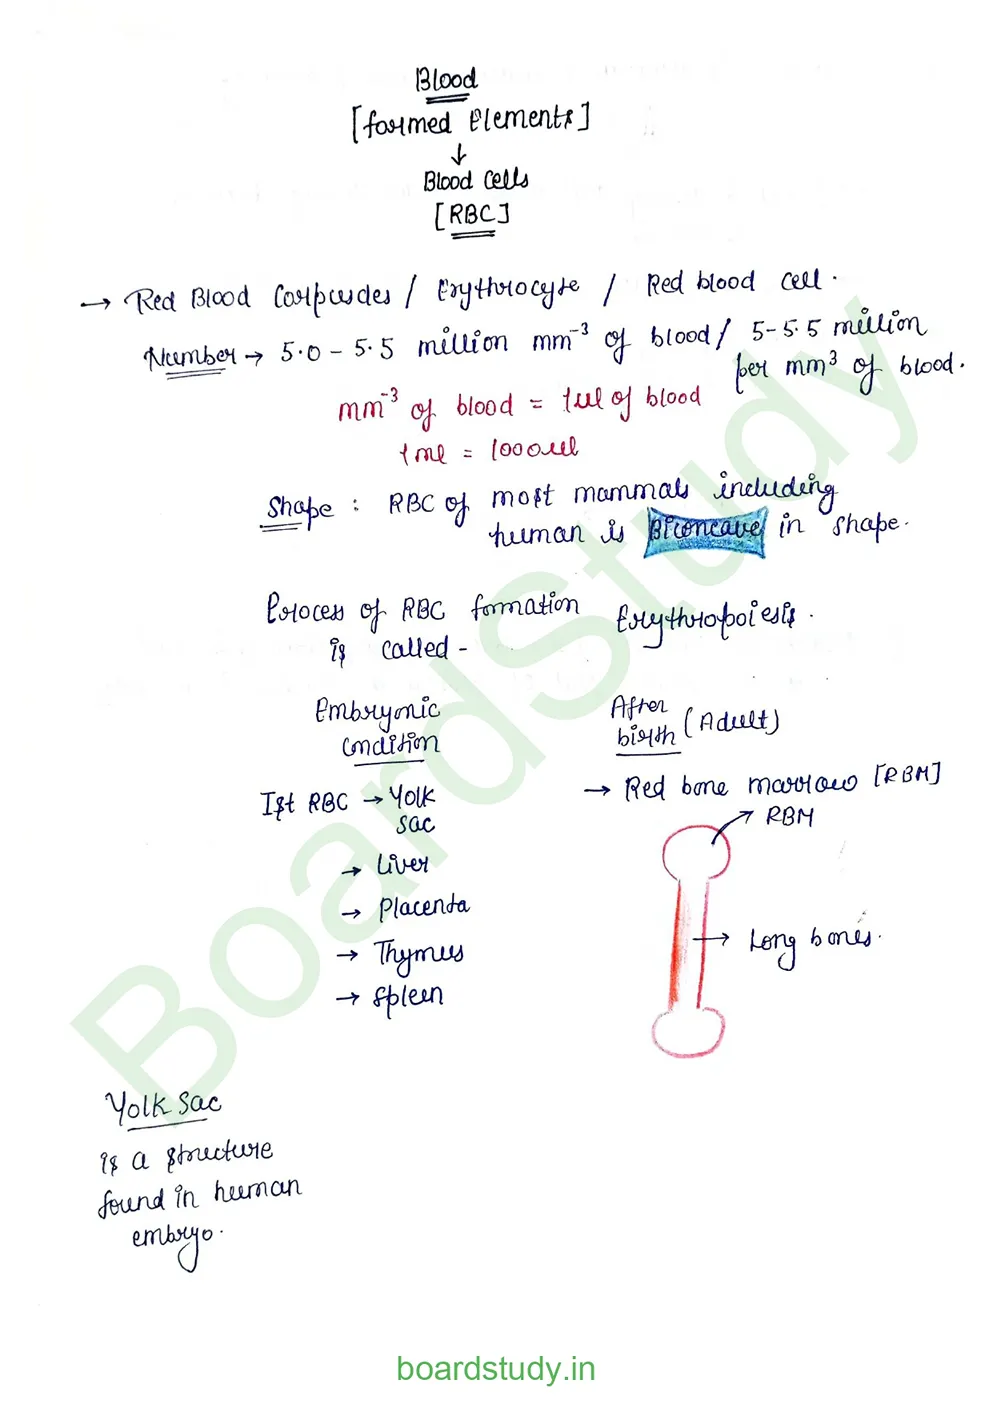 Blood
[formed Elements]
↓
Blood Cells
[RBC]
→ Red Blood Corpuscles / Erythrocyte / Red blood cell.
Number → 5.0 - 5.5 million mm⁻³ of blood / 5-5.5 million
per mm³ of blood.
mm⁻³ of blood = 1ul of blood
1ml = 1000ul
Shape : RBC of most mammals including
human is Biconcave in shape.
Process of RBC formation Erythropoiesis.
is called -
Embryonic
condition
After
birth (Adult)
Ist RBC → Yolk
sac
→ Liver
→ Placenta
→ Thymus
→ Spleen
→ Red bone marrow [RBM]
RBM
→ Long bones.
Yolk Sac
is a structure
found in human
embryo.
BoardStudy
boardstudy.in